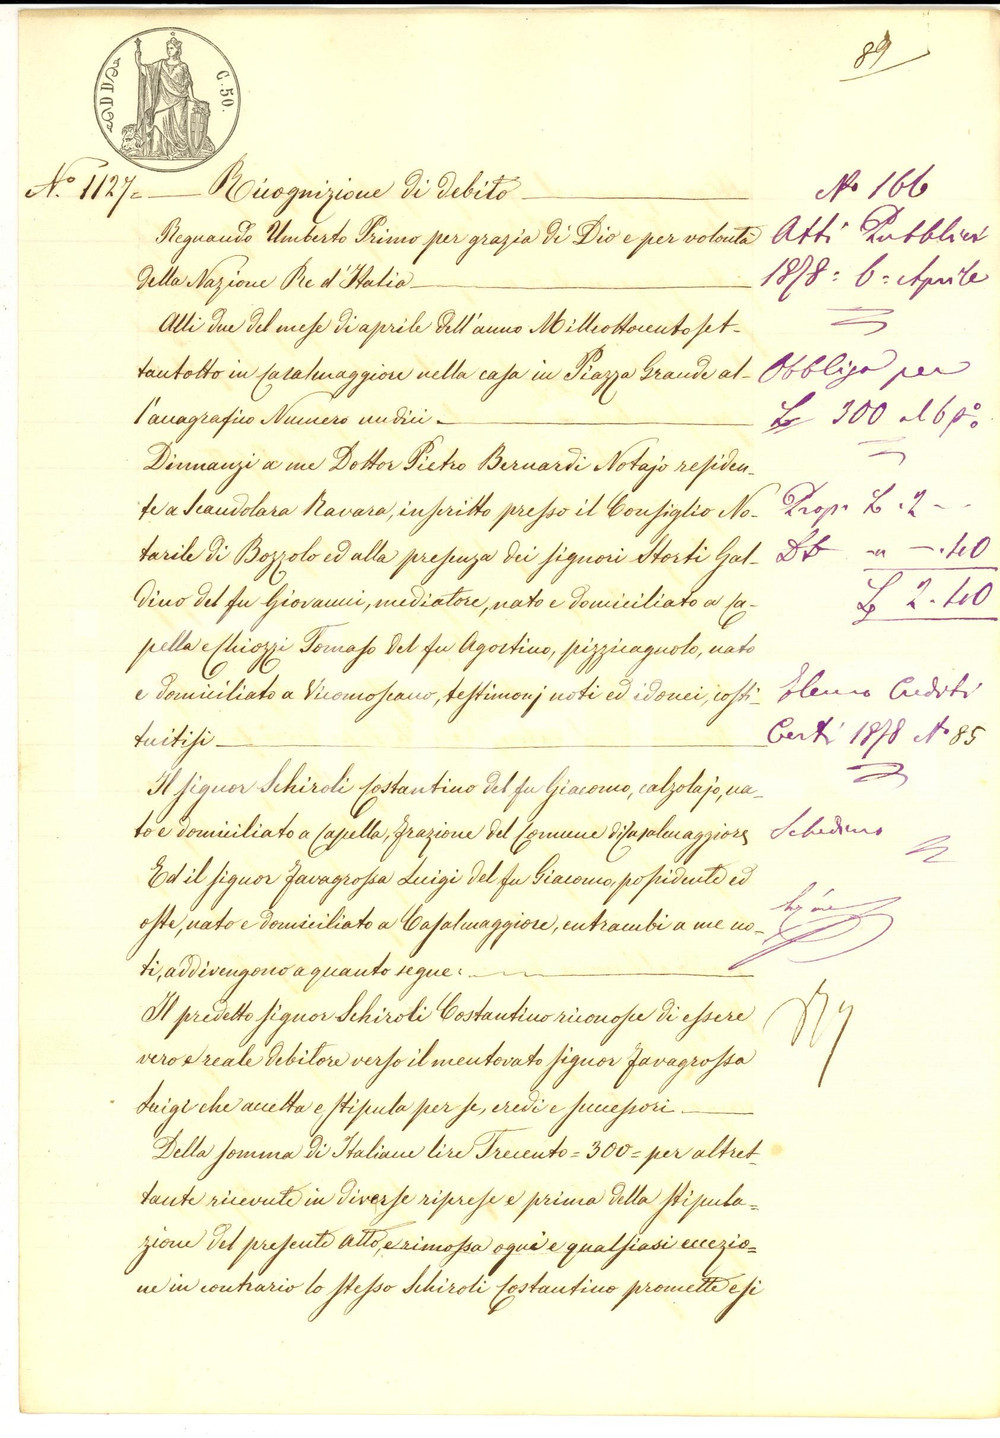 89
DD
C. 50.
N.º 1127= Ricognizione di debito
Regnando Umberto Primo per grazia di Dio e per volontà
della Nazione Re d'Italia
Alli due del mese di aprile dell'anno Milleottocentoset-
tantotto in Casalmaggiore nella casa in Piazza Grande al-
l'anagrafico Numero undici.
Dinnanzi a me Dottor Pietro Bernardi Notajo residen-
te a Scandolara Ravara, inscritto presso il Consiglio No-
tarile di Bozzolo ed alla presenza dei signori Storti Gal-
dino del fu Giovanni, mediatore, nato e domiciliato a Ca-
pella e Chiozzi Tomaso del fu Agostino, pizzicagnolo, nato
e domiciliato a Vicomoscano, testimonj noti ed idonei, costi-
tuitisi
Il signor Schiroli Costantino del fu Giacomo, calzolajo, na-
to e domiciliato a Capella, frazione del Comune di Casalmaggiore
Ed il signor Favagrossa Luigi del fu Giacomo, possidente ed
oste, nato e domiciliato a Casalmaggiore, entrambi a me no-
ti, addivengono a quanto segue:
Il predetto signor Schiroli Costantino riconosce di essere
vero e reale debitore verso il mentovato signor Favagrossa
Luigi che accetta e stipula per se, eredi e successori
Della somma di Italiane lire Trecento = 300 = per altret-
tante ricevute in diverse riprese e prima della stipula=
zione del presente Atto, e rimossa ogni e qualsiasi eccezio=
ne in contrario lo stesso Schiroli Costantino promette e si
Nº 166
Atti Pubblici
1878: 6= Aprile
Obbligo per
L. 300 al 6 p%
Prop. L. 2 - -
- .40
L. 2.40
Elenco Crediti
Certi 1878 Nº 85